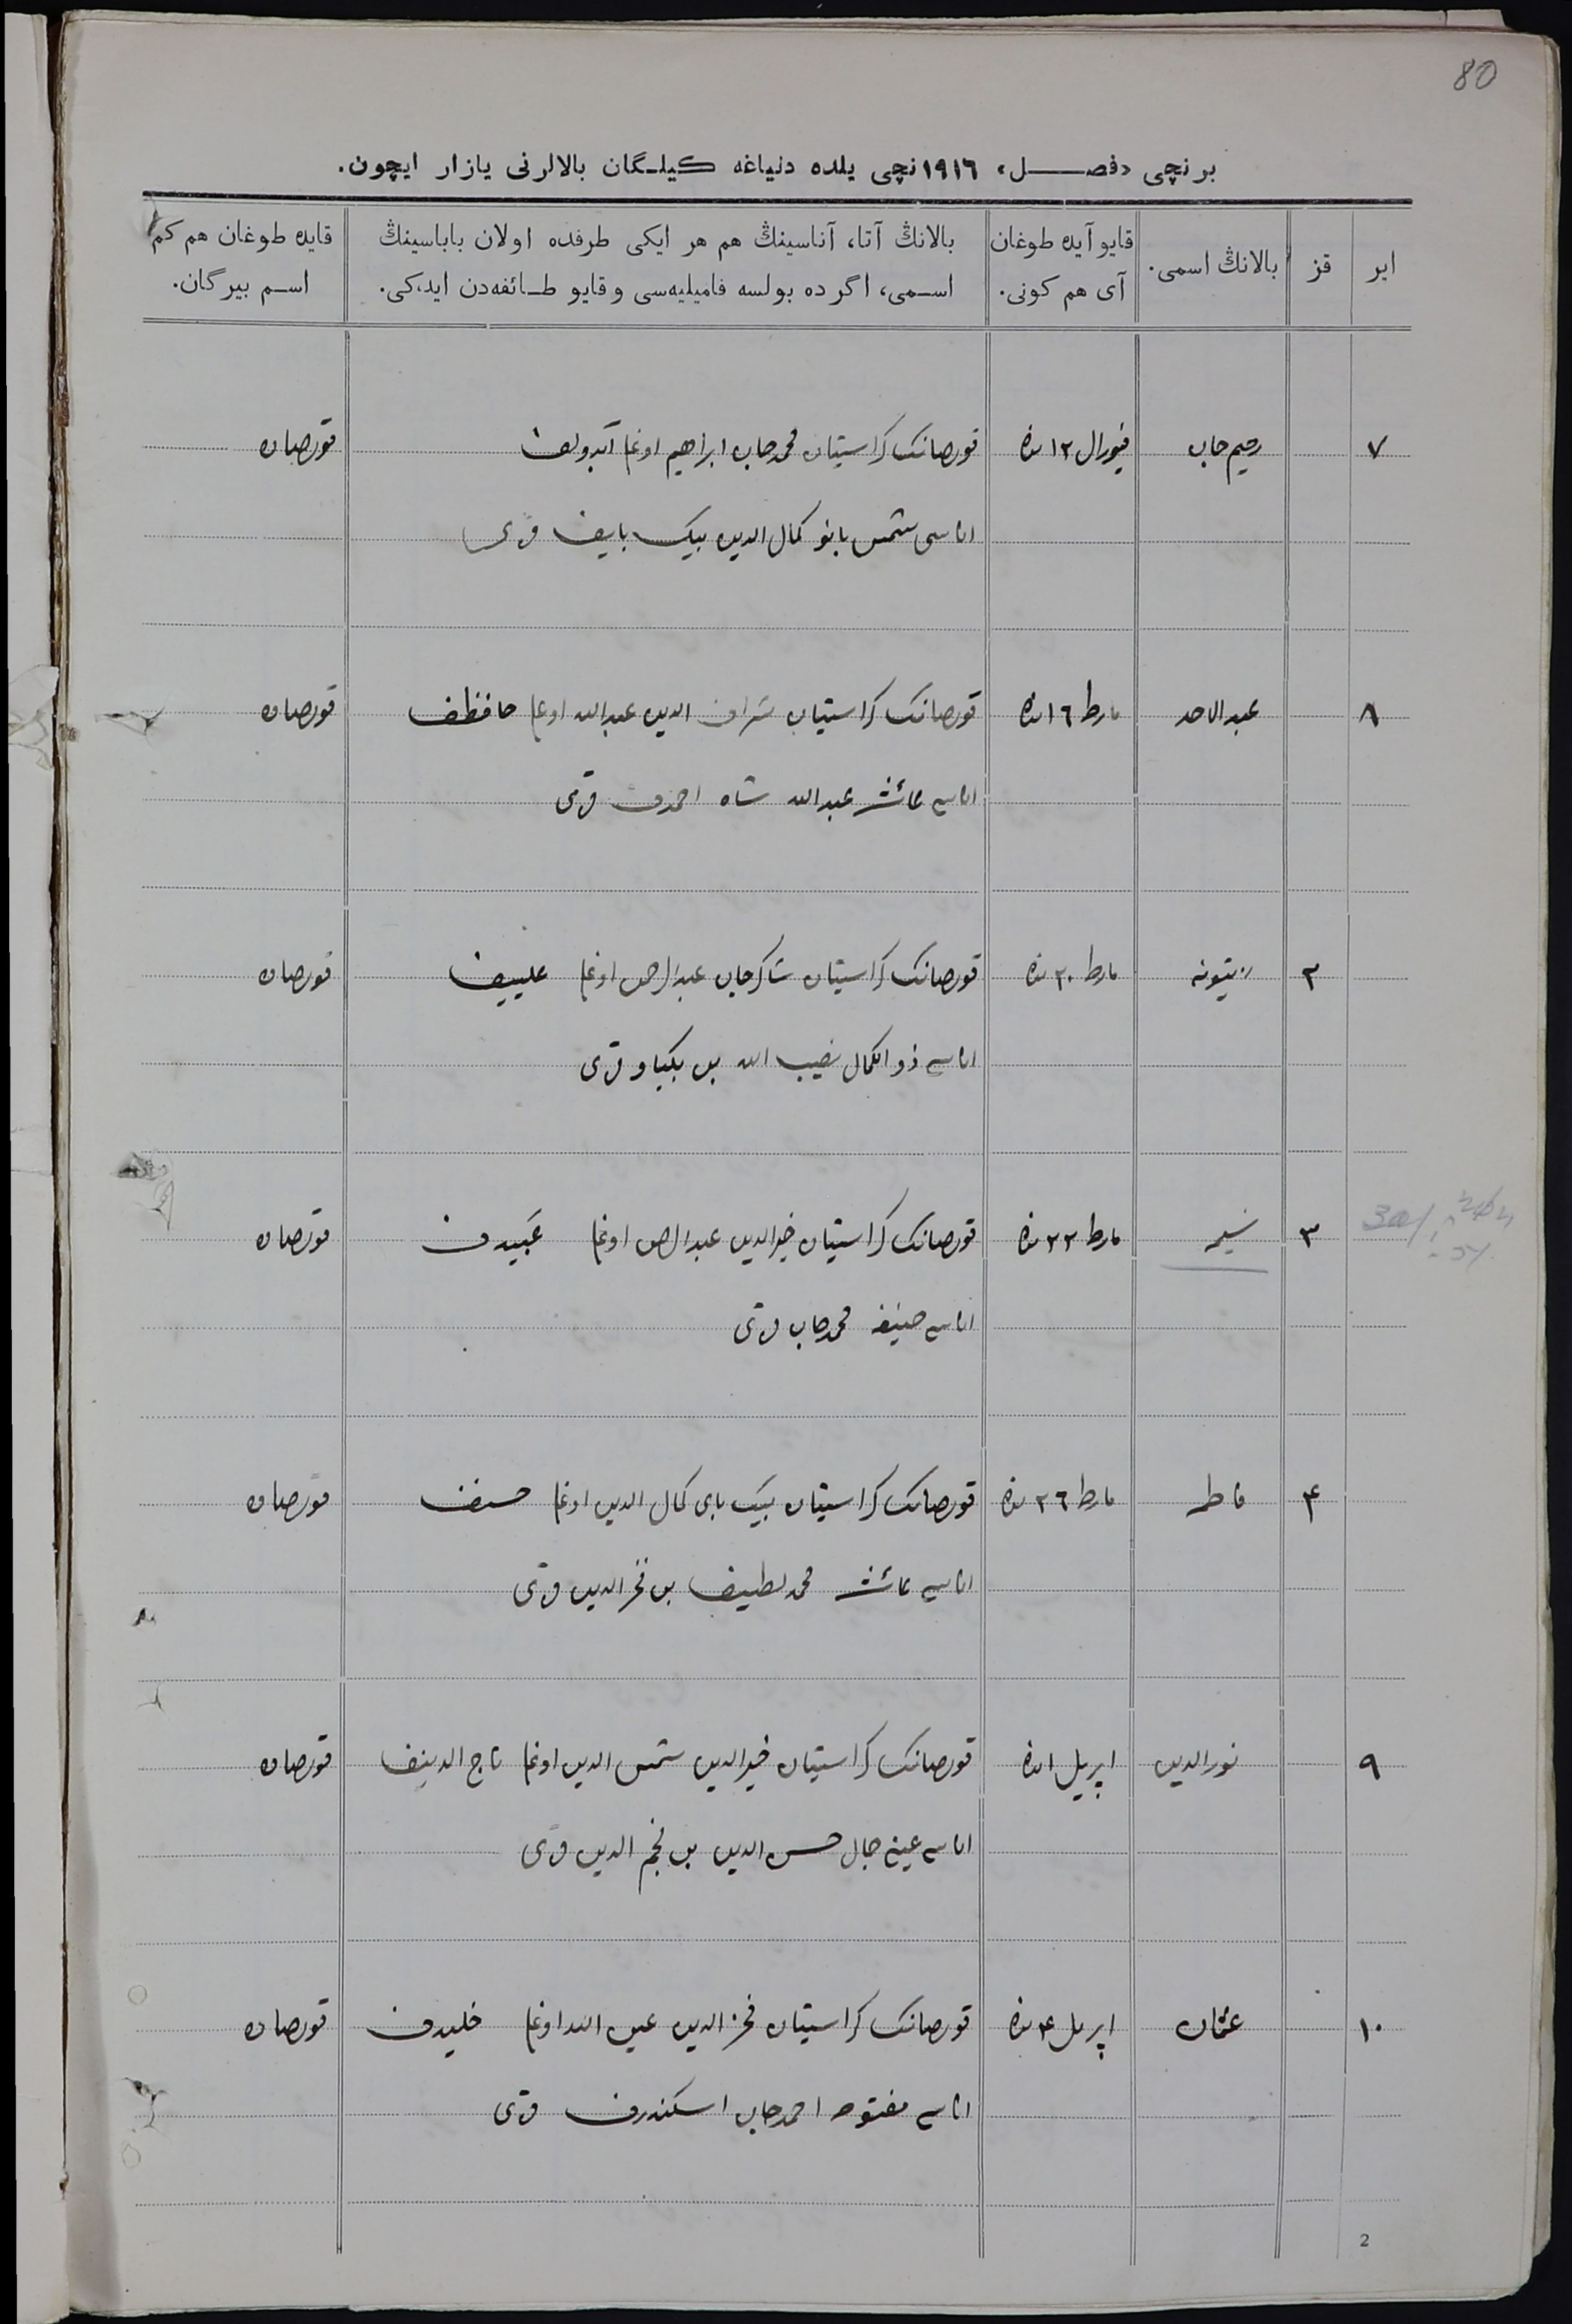 80
برنچی «فصل» ١٩١٦نچی یلده دنیاغه کیلگان بالالرنی یازار ایچون.
ایر
قز
بالانڭ اسمی.
قایو آیده طوغان
آی هم کونی.
بالانڭ آتا، آناسینڭ هم هر ایکی طرفده اولان باباسینڭ
اسمی، اگر ده بولسه فامیلیه‌سی و قایو طائفه‌دن ایدکی.
قایده طوغان هم کم
اسم بیرگان.
٧ رحیم جان فیورال ١٢ نده قورصانڭ کراستیان محمدجان ابراهیم اوغلی قورصاده
اناسی شمس بانو کمال الدین بیک بایف قزی
٨ عبدالاحد مارط ١٦ نده قورصانڭ کراستیان شراف الدین عبدالله اوغلی حافظف قورصاده
اناسی عائشه عبدالله شاه احمدف قزی
٢ مارط ٢٠ نده قورصانڭ کراستیان شاکرجان عبدالرحمن اوغلی علییف قورصاده
اناسی ذوالکمال نصیب الله بن قزی
٣ مارط ٢٢ نده قورصانڭ کراستیان خیرالدین عبدالرحمن اوغلی عبیدف قورصاده
اناسی حنیفه محمدجان قزی
۴ فاطمه مارط ٢٦ نده قورصانڭ کراستیان بیک بای کمال الدین اوغلی حسنف قورصاده
اناسی عائشه محمد لطیف بن فخرالدین قزی
٩ نورالدین اپریل ١ نده قورصانڭ کراستیان خیرالدین شمس الدین اوغلی تاج الدینف قورصاده
اناسی عینی جمال حسن الدین بن نجم الدین قزی
١٠ عثمان اپریل ۴ نده قورصانڭ کراستیان فخرالدین عین الله اوغلی خلیدف قورصاده
اناسی مفتوحه احمدجان اسکندرف قزی
2